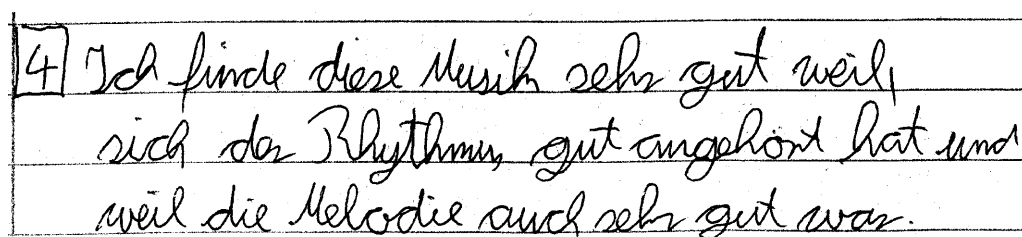 4 Ich finde diese Musik sehr gut weil,
sich der Rhythmus gut angehört hat und
weil die Melodie auch sehr gut war.